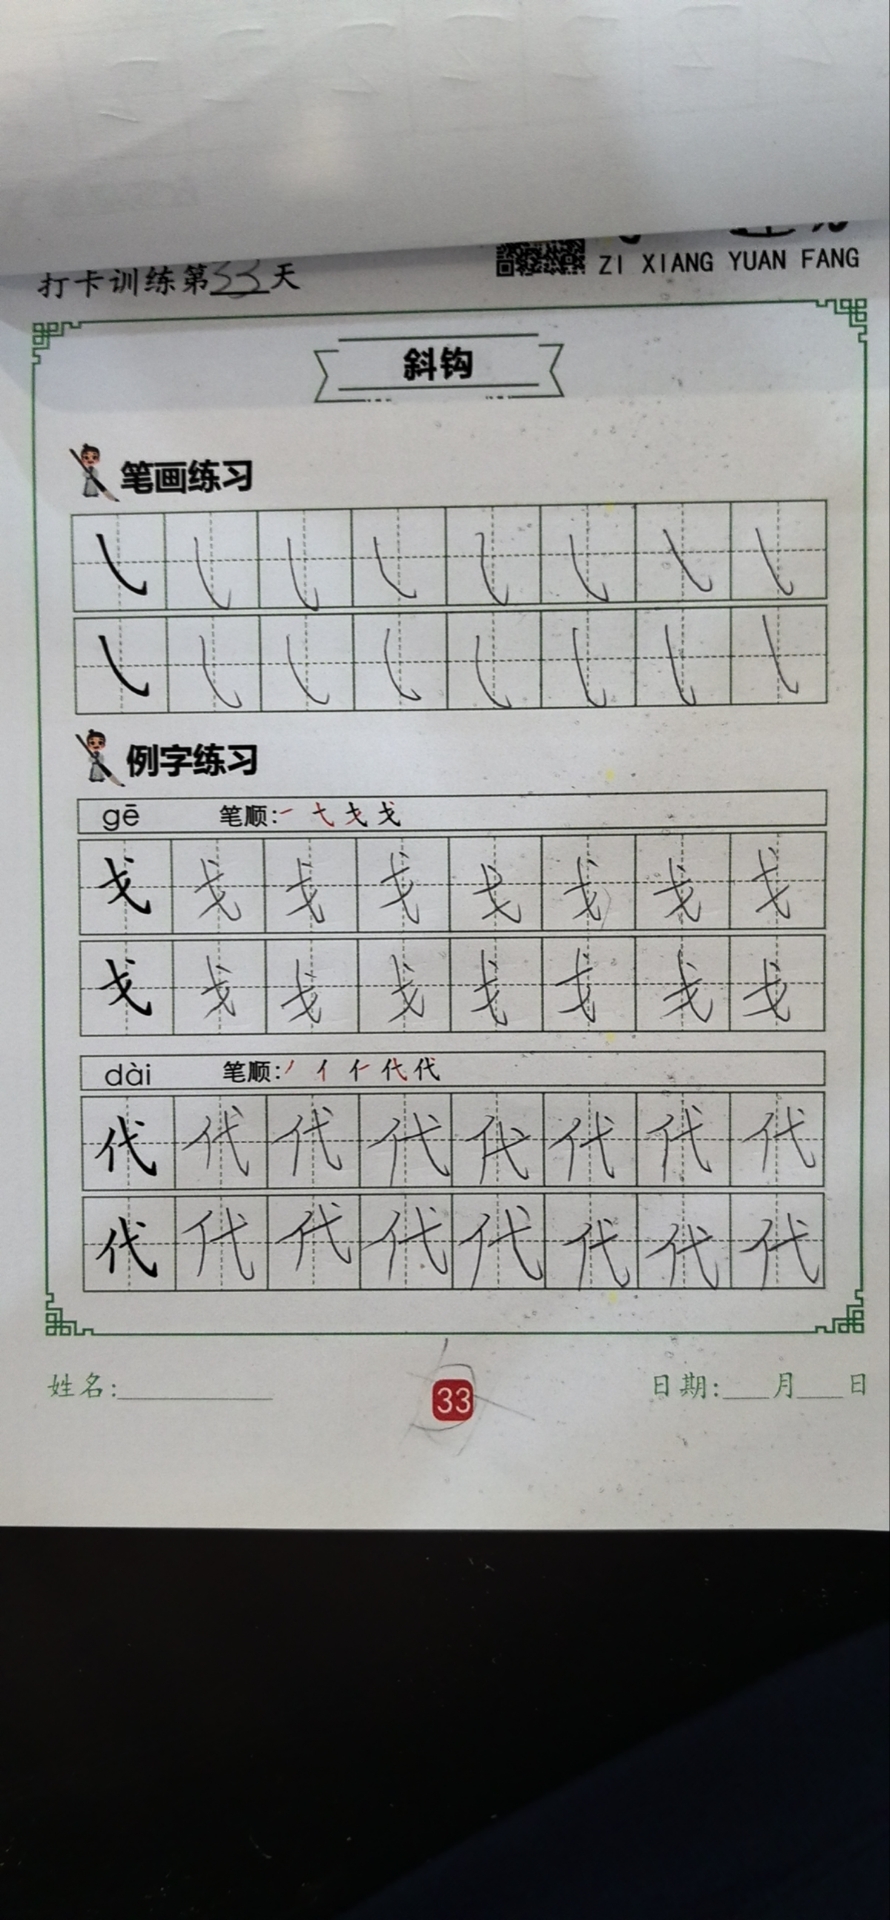 打卡训练第33天
ZI XIANG YUAN FANG
斜钩
笔画练习
㇂ ㇂ ㇂ ㇂ ㇂ ㇂ ㇂ ㇂
㇂ ㇂ ㇂ ㇂ ㇂ ㇂ ㇂ ㇂
例字练习
gē 笔顺: 一 七 戈 戈
戈 戈 戈 戈 戈 戈 戈 戈
戈 戈 戈 戈 戈 戈 戈 戈
dài 笔顺: 丿 亻 仁 代 代
代 代 代 代 代 代 代 代
代 代 代 代 代 代 代 代
姓名:__________ 33 日期:___月___日